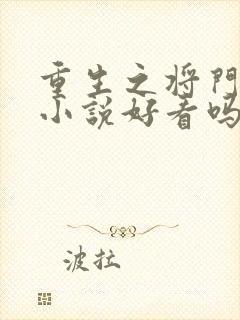 重生之将門
小説好看吗
波拉